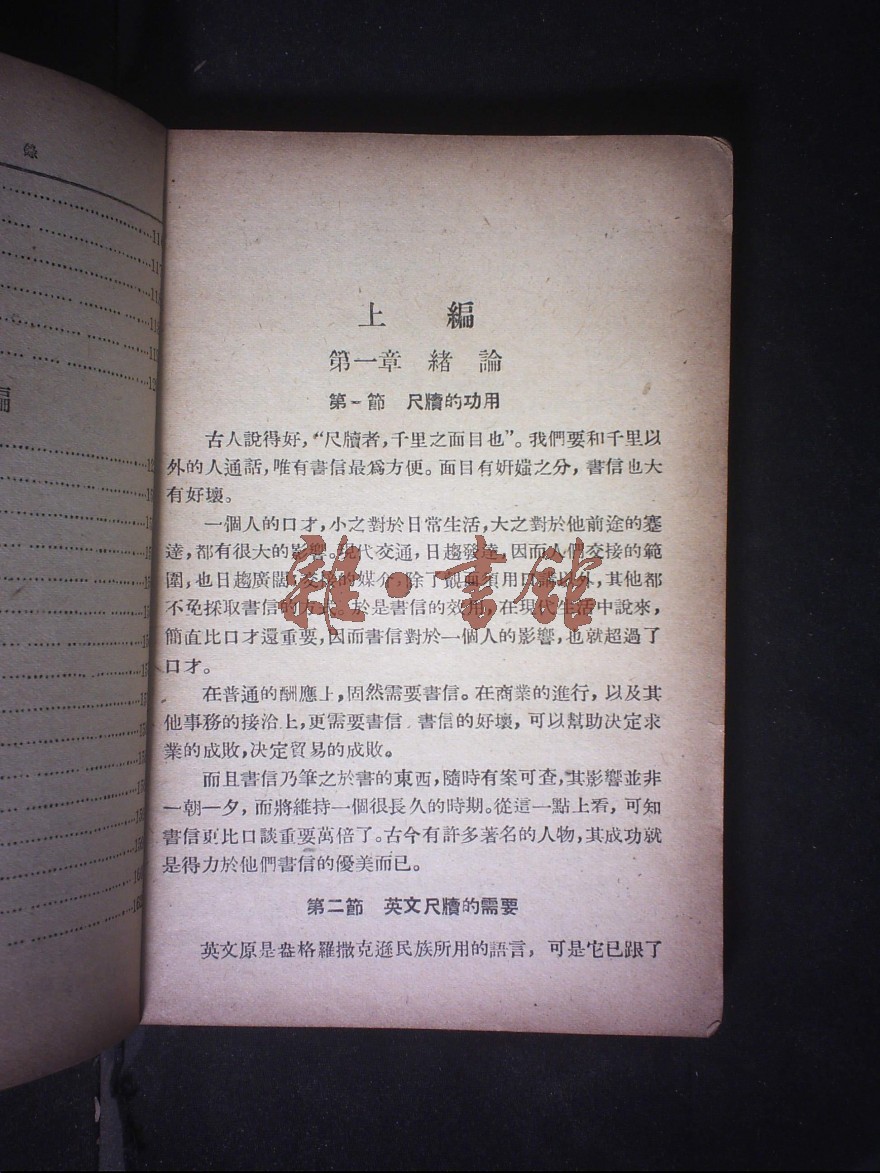 錄
116
117
編
上 編
第一章 緒 論
第一節 尺牘的功用
古人說得好,“尺牘者,千里之面目也”。我們要和千里以
外的人通話,唯有書信最爲方便。面目有妍媸之分,書信也大
有好壞。
一個人的口才,小之對於日常生活,大之對於他前途的蹇
達,都有很大的影響。現代交通,日趨發達,因而人們交接的範
圍,也日趨廣闊,交接的媒介,除了覿面須用口講以外,其他都
不免採取書信的方式。於是書信的效用,在現代生活中說來,
簡直比口才還重要,因而書信對於一個人的影響,也就超過了
口才。
在普通的酬應上,固然需要書信。在商業的進行,以及其
他事務的接洽上,更需要書信.書信的好壞,可以幫助決定求
業的成敗,決定貿易的成敗。
而且書信乃筆之於書的東西,隨時有案可查,其影響並非
一朝一夕,而將維持一個很長久的時期。從這一點上看,可知
書信更比口談重要萬倍了。古今有許多著名的人物,其成功就
是得力於他們書信的優美而已。
第二節 英文尺牘的需要
英文原是盎格羅撒克遜民族所用的語言,可是它已跟了
雜·書館